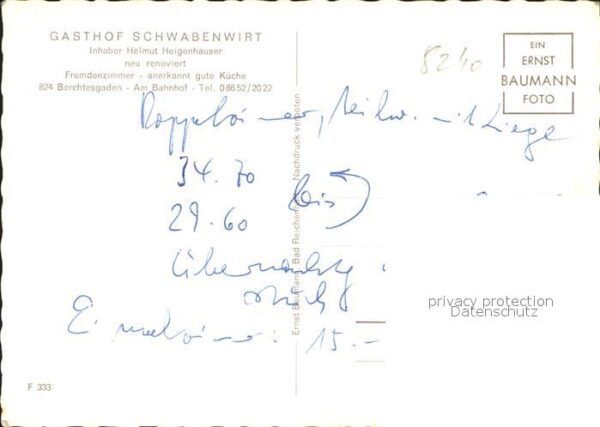 GASTHOF SCHWABENWIRT
Inhaber Helmut Heigenhauser
neu renoviert
Fremdenzimmer - anerkannt gute Küche
824 Berchtesgaden - Am Bahnhof - Tel. 08652/2022
8240
EIN
ERNST
BAUMANN
FOTO
Liege
34.70
bis
29.60
15.-
Ernst Baumann, Bad Reichenhall Nachdruck verboten
privacy protection
Datenschutz
F 333